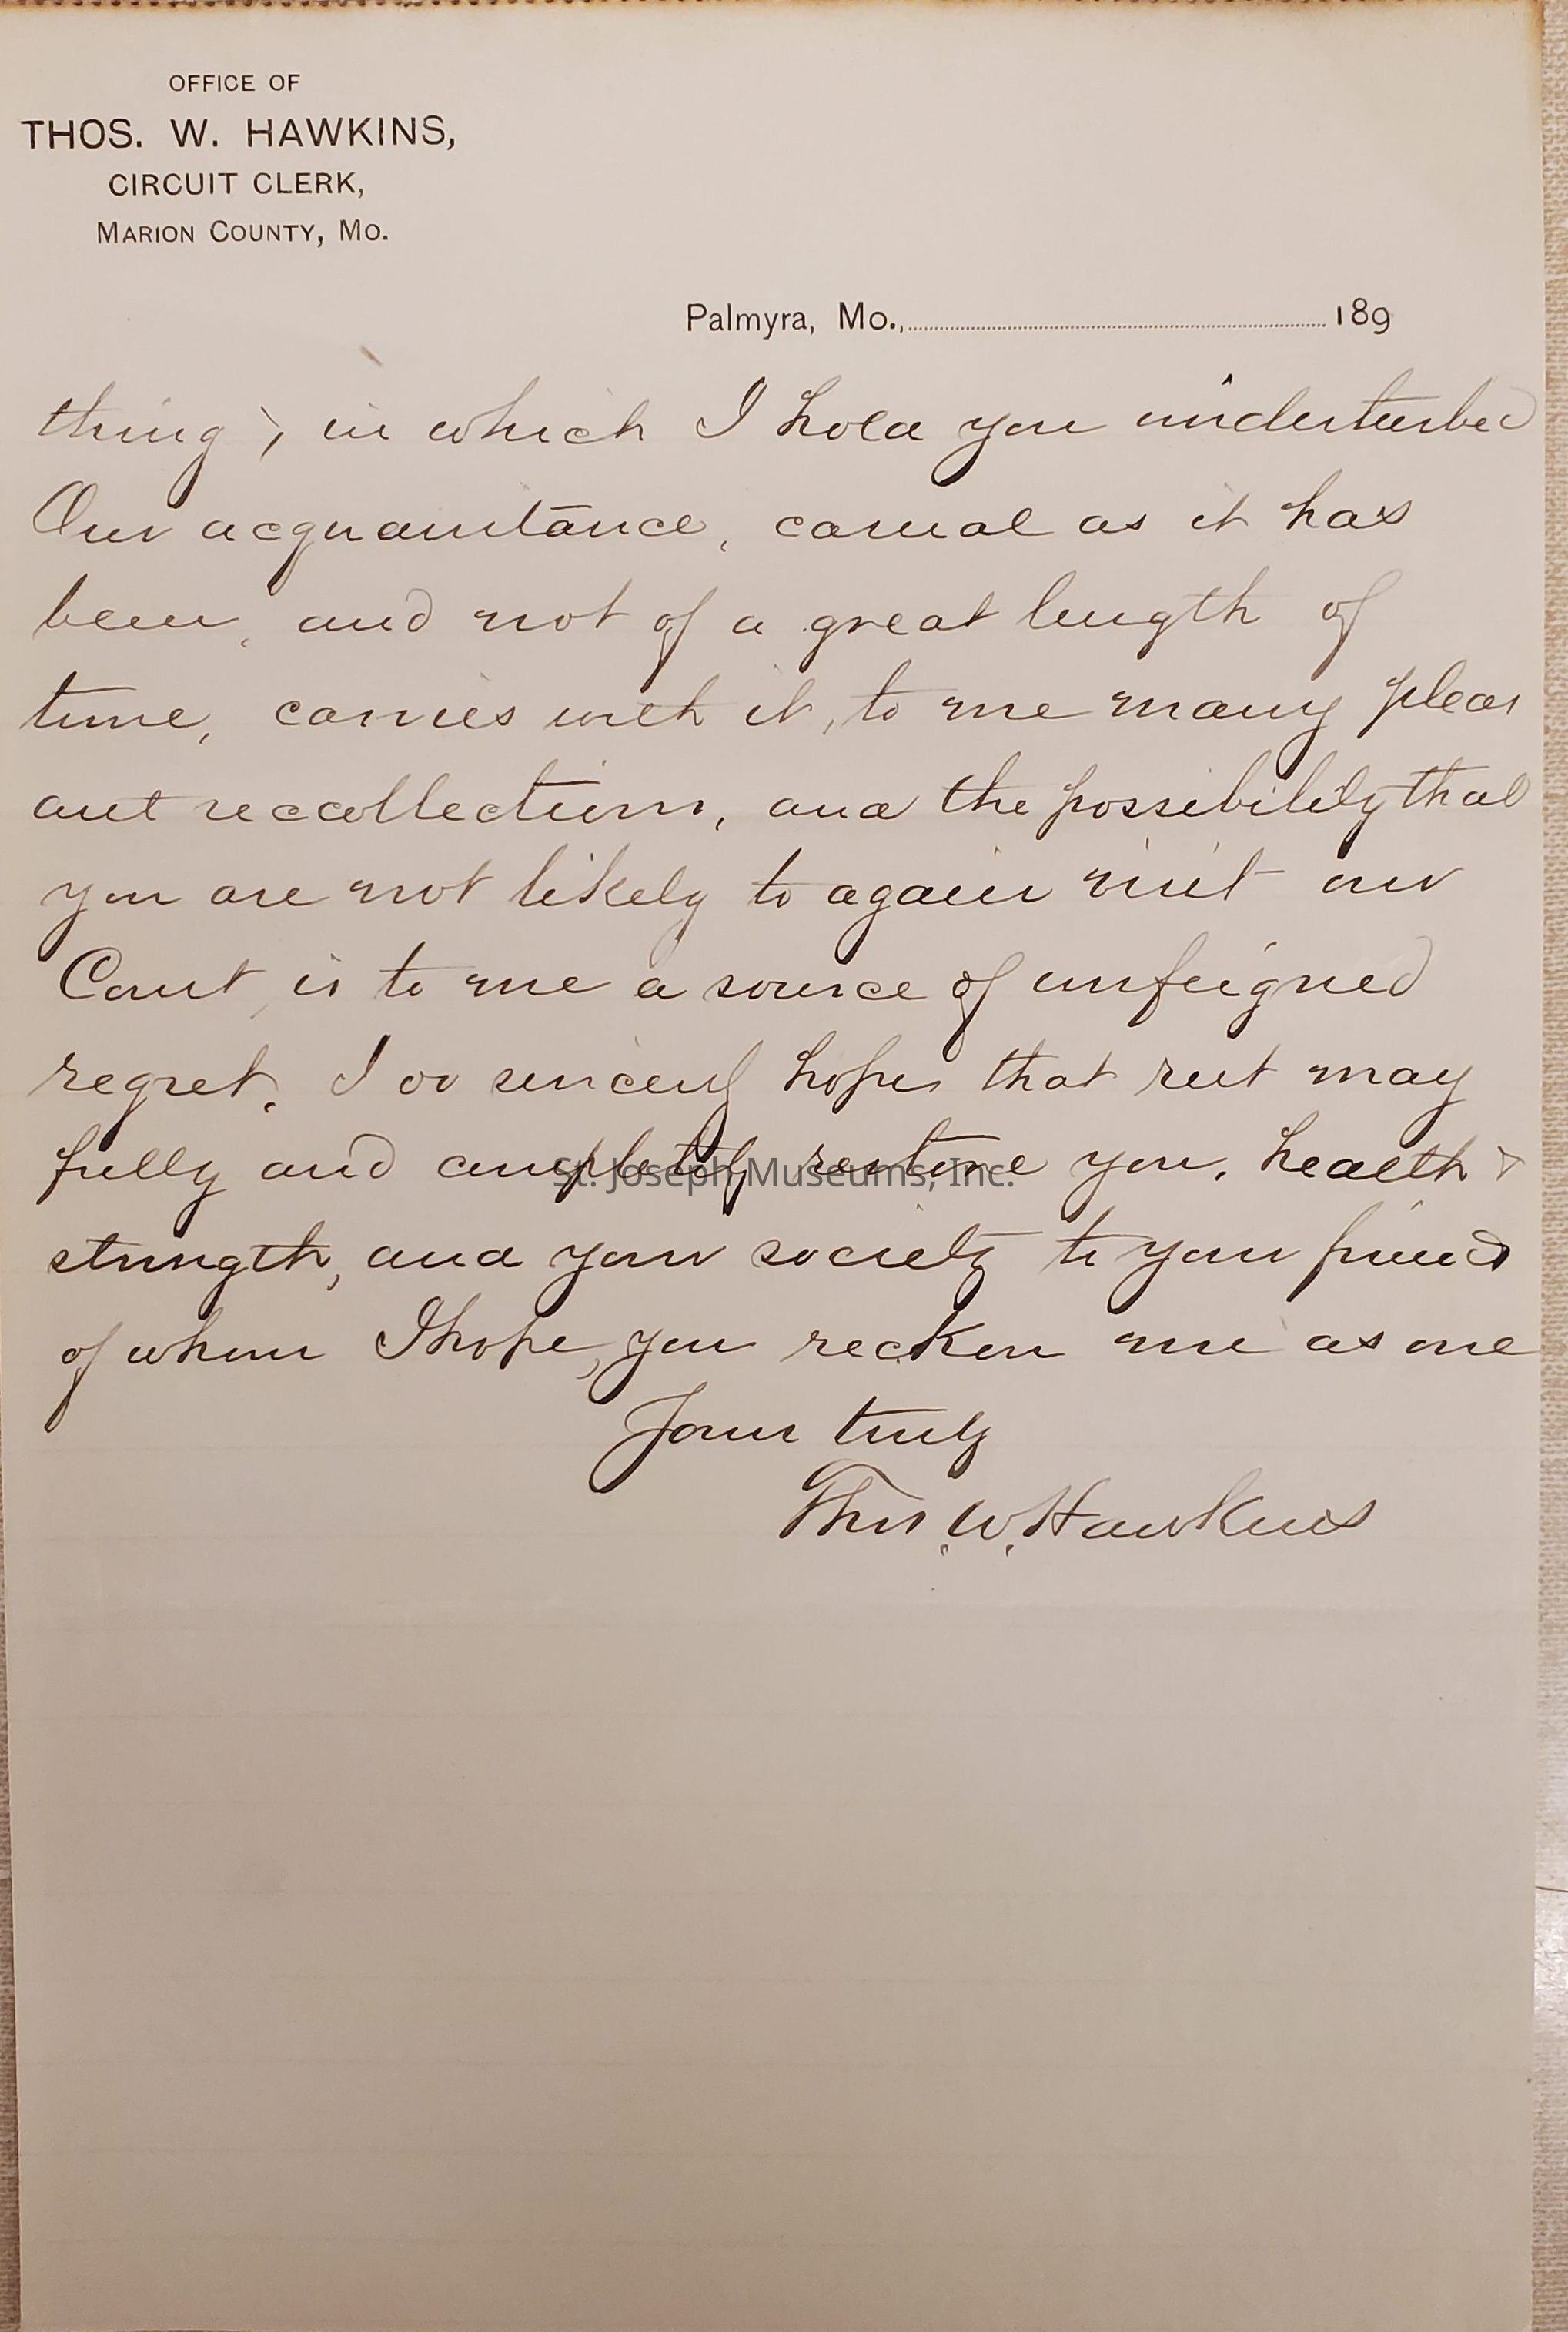 OFFICE OF
THOS. W. HAWKINS,
CIRCUIT CLERK,
MARION COUNTY, MO.
Palmyra, Mo., 189
thing, in which I hold you
Our acquaintance, casual as it has
been, and not of a great length of
time, carries with it, to me many pleas
ant reccollections, and the possibility that
you are not likely to again visit our
Court, is to me a source of unfeigned
regret. I do sincerely hope that rest may
fully and completely restore you, health &
strength, and your society to your friends
of whom I hope, you reckon me as one
Yours truly
Thos. W. Hawkins
St. Joseph Museums, Inc.